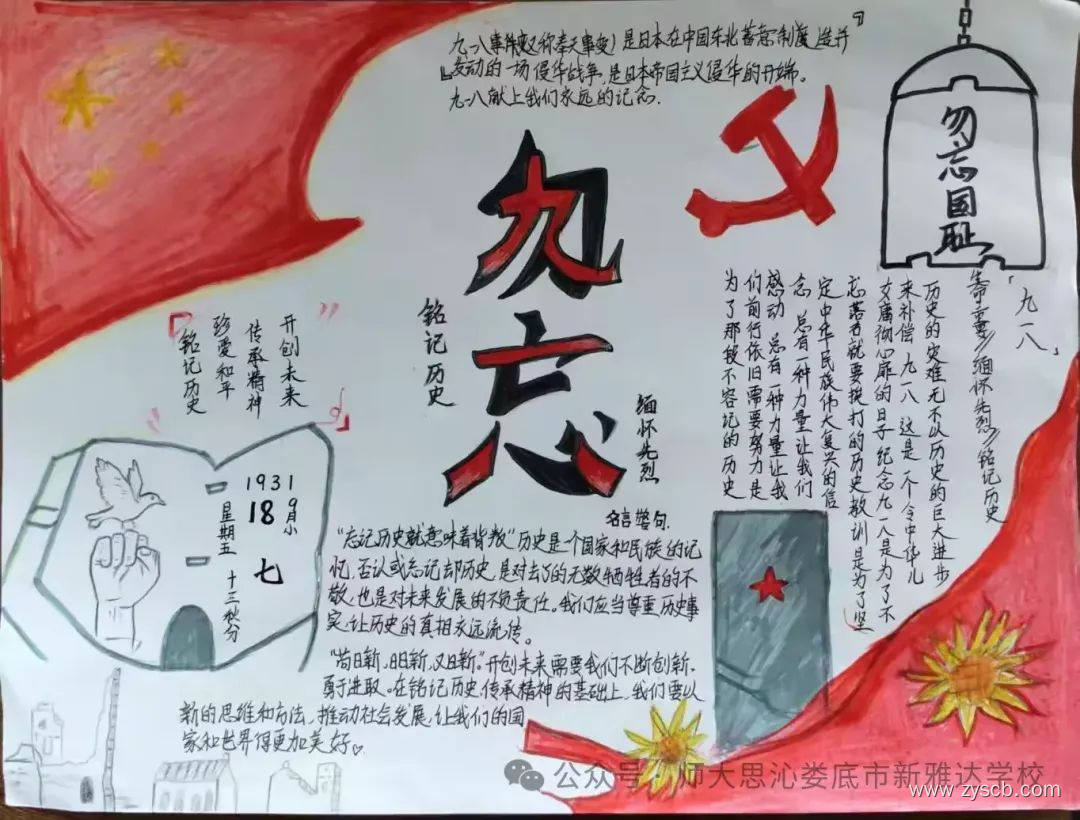 九一八事件变(又称奉天事变)是日本在中国东北蓄意制造并
发动的一场侵华战争,是日本帝国主义侵华的开端。
九一八献上我们永远的记念.
勿忘国耻
勿忘
铭记历史
缅怀先烈
开创未来
传承精神
珍爱和平
铭记历史
1931
9月小
18
星期五
七
十三秋分
「九一八」
缅怀先烈//铭记历史
历史的灾难无不以历史的巨大进步
来补偿 九一八 这是一个令中华儿
女痛彻心扉的日子 纪念九一八是为了不
忘落后就要挨打的历史教训是为了坚
定中华民族伟大复兴的信
念 总有一种力量让我们
感动 总有一种力量让我
们前行依旧需要努力是
为了那段不容忘记的历史
名言警句.
"忘记历史就意味着背叛"历史是个国家和民族的记
忆,否认或忘记去历史,是对去了的无数牺牲者的不
敬,也是对未来发展的不负责任。我们应当尊重历史事
实,让历史的真相永远流传。
"苟日新,日日新,又日新."开创未来需要我们不断创新,
勇于进取。在铭记历史,传承精神的基础上,我们要以
新的思维和方法,推动社会发展,让我们的国
家和世界得更加美好。
公众号·师大思沁娄底市新雅达学校
www.zyscb.com